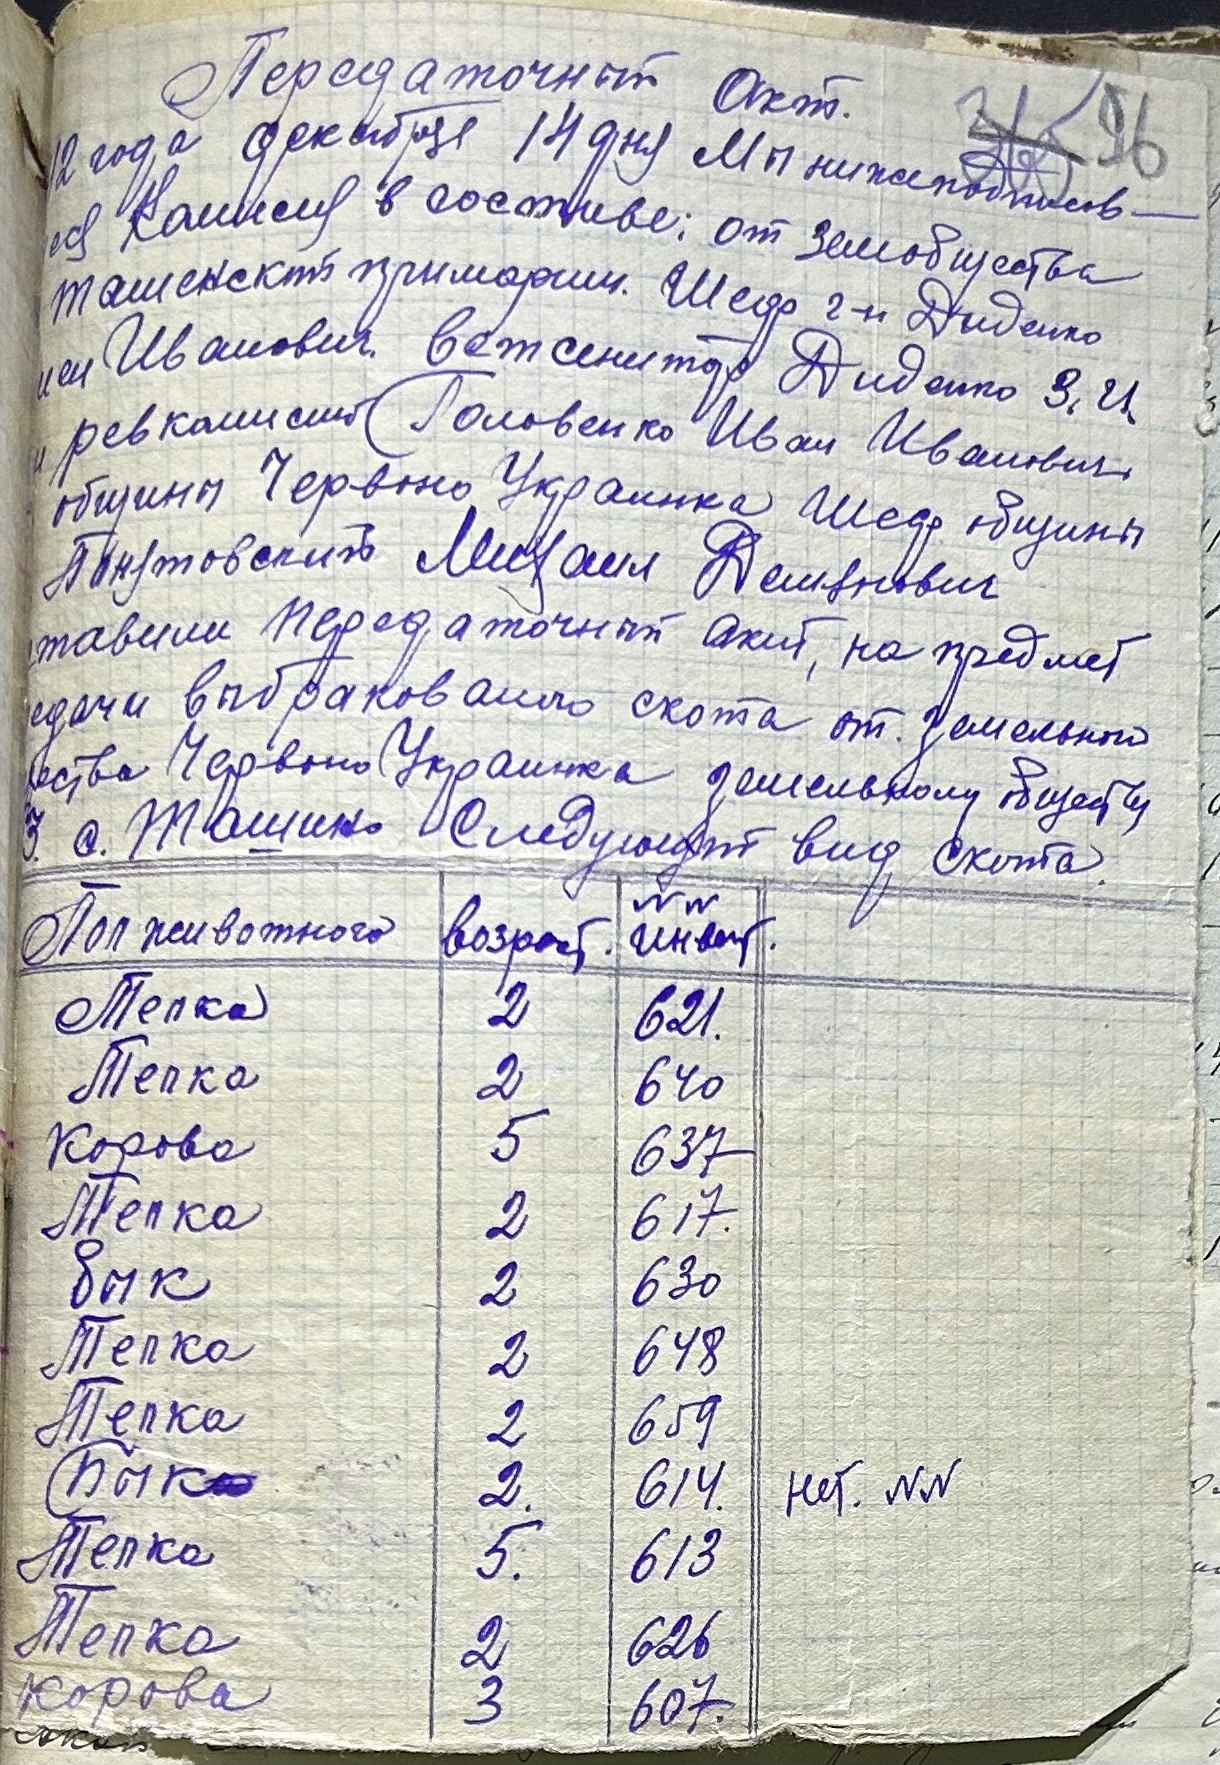 Передаточный Акт.
96
42 года декабря 14 дня Мы нижеподписов—
ся Комисия в составе: от Земобщества
Ташенской примарии. Шеф г-н Диденко
Иванович. Ветженитор Диденко З. И.
и ревкомисии Головенко Иван Иванович.
общины Червоно Украинка Шеф общины
Понятовский Михаил Демянович
ставили передаточный акт, на предмет
едачи выбракованого скота от земельного
ества Червоно Украинка земельному обществу
3. с. Ташино Следующит вид скота.
Пол животного возраст. №№ инвент.
Телка 2 621.
Телка 2 640
Корова 5 637
Телка 2 617.
Бык 2 630
Телка 2 648
Телка 2 659
Бык 2. 614. нет. №№
Телка 5. 613
Телка 2 626
Корова 3 607.